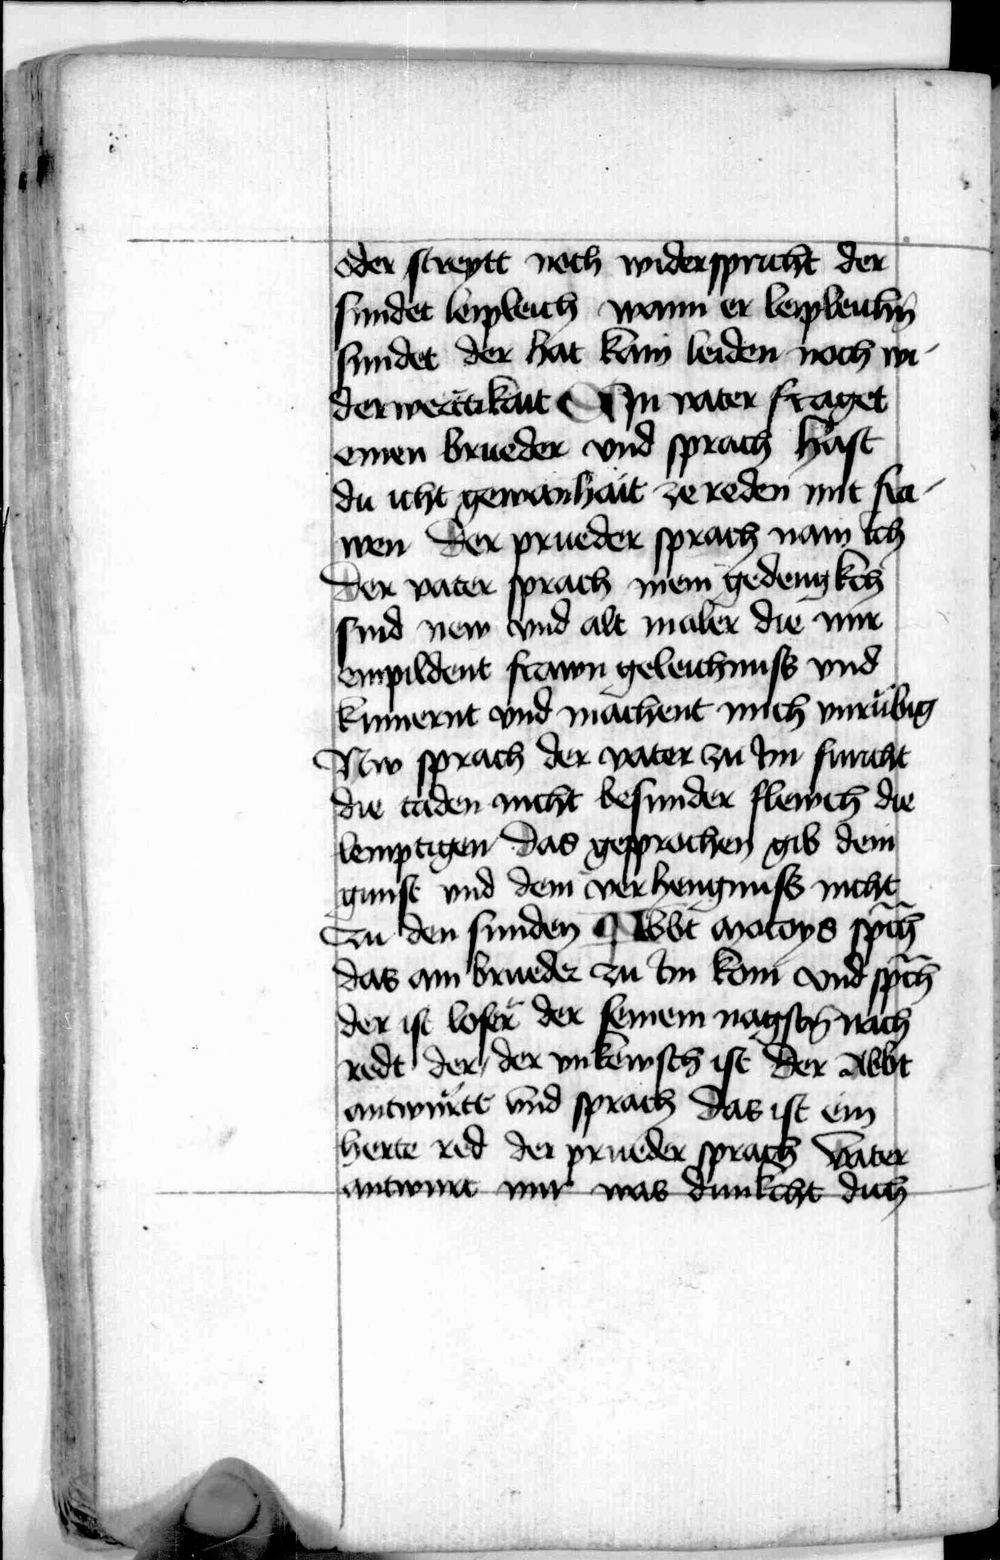 oder streytt noch widerspricht der
sundet leipleich wann er leipleichn̄
sundet der hat kain leiden noch wi-
derwerttikait Ain vater fraget
einen brueder vnd sprach hast
du icht gewanhait ze reden mit fra-
wen Der prueder sprach nain ich
Der vater sprach mein gedengkch
sind new vnd alt maler die mir
empildent frawn geleichnuss vnd
kumernt vnd machent mich vnrübig
Nw sprach der vater zu Im fürcht
die taden nicht besunder flewch die
lemptigen Das gesprochen gib dein
gunst vnd dein verhengnuss nicht
Zu den sunden Abbt Motoys spch
das ain brueder zu Im kom vnd spch
der ist loser der seinem nagstn̄ nach
redt der / der vnkewsch ist Der Abbt
antwürtt vnd sprach Das ist ein
herte red der prueder sprach Vater
antwurt mir was dunkcht dich